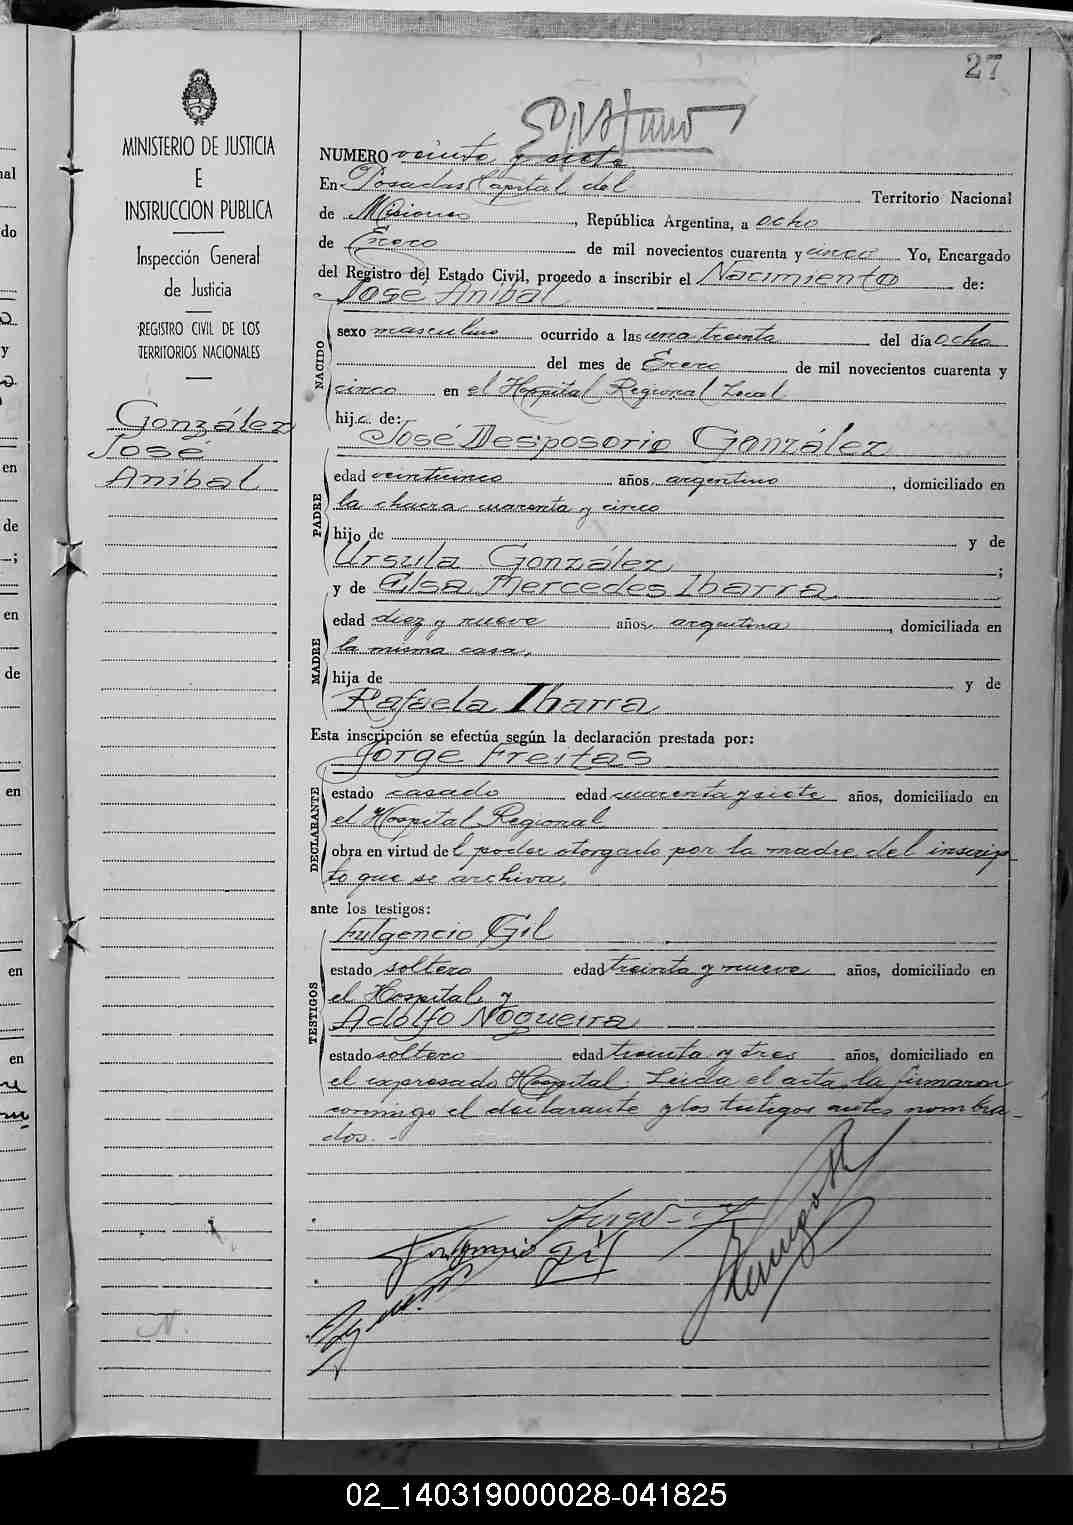 27
MINISTERIO DE JUSTICIA
E
INSTRUCCION PUBLICA
Inspección General
de Justicia
REGISTRO CIVIL DE LOS
TERRITORIOS NACIONALES
González
José
Anibal
NUMERO veinte y siete
En Posadas Capital del Territorio Nacional
de Misiones, República Argentina, a ocho
de Enero de mil novecientos cuarenta y cinco Yo, Encargado
del Registro del Estado Civil, procedo a inscribir el Nacimiento de:
José Anibal
NACIDO
sexo masculino ocurrido a las una treinta del día ocho
del mes de Enero de mil novecientos cuarenta y
cinco en el Hospital Regional Local
hijo de:
José Desposorio González
PADRE
edad veinticinco años, argentino, domiciliado en
la chacra cuarenta y cinco
hijo de y de
Ursula González;
y de Elsa Mercedes Ibarra
MADRE
edad diez y nueve años, argentina, domiciliada en
la misma casa,
hija de y de
Rafaela Ibarra
Esta inscripción se efectúa según la declaración prestada por:
Jorge Freitas
DECLARANTE
estado casado edad cuarenta y siete años, domiciliado en
el Hospital Regional
obra en virtud del poder otorgado por la madre del inscrip-
to que se archiva.
ante los testigos:
TESTIGOS
Fulgencio Gil
estado soltero edad treinta y nueve años, domiciliado en
el Hospital, y
Adolfo Nogueira
estado soltero edad treinta y tres años, domiciliado en
el expresado Hospital. Leida el acta, la firmaron
conmigo el declarante y los testigos antes nombra-
dos. -
Fulgencio Gil
al
do
y
en
de
en
de
en
en
en
02_140319000028-041825